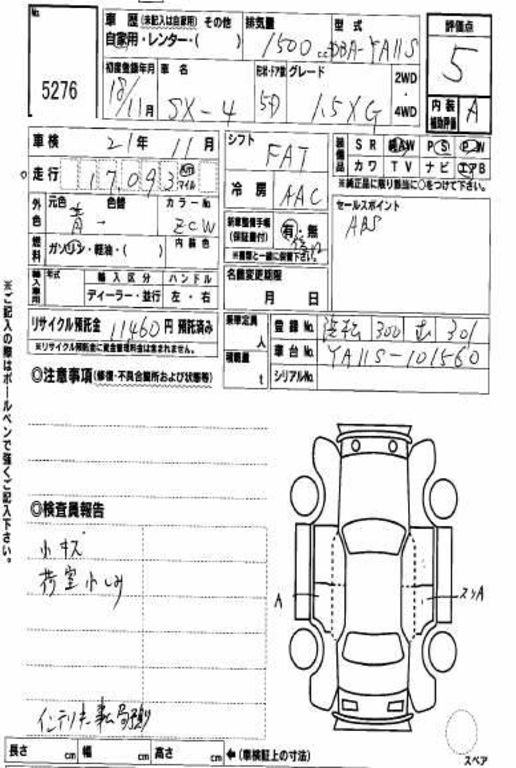 No.
5276
車歴 (未記入は自家用) その他 排気量 型式 評価点
自家用・レンター・( ) 1500cc DBA-YA11S 5
初度登録年月 車名 形状・ドア数 グレード 2WD・4WD 内装補助評価 A
18/11月 SX-4 5D 1.5XG
車検 21年11月 シフト FAT 装備品 SR AW PS PW
カワ TV ナビ エアB
※純正品に限り該当に○をつけて下さい。
走行 17,093 km マイル 冷房 AAC セールスポイント
ABS
外色 元色 色替 カラーNo. 新車整備手帳(保証書付) 有・無
青 - ZCW ※書類と一緒に保管下さい。
燃料 ガソリン・軽油・( ) 内装色 名義変更期限
月 日
輸入車用 年式 輸入区分 ハンドル
ディーラー・並行 左・右
リサイクル預託金 11460円 預託済み 乗車定員 人 登録No. 浜松 300 む 301
※リサイクル預託金に資金管理料金は含まれません。 積載量 t 車台No. YA11S-101560
シリアルNo.
◎注意事項(修復・不具合箇所および状態等)
◎検査員報告
小キズ
荷室小しみ
A
スリA
スペア
長さ cm 幅 cm 高さ cm ←(車検証上の寸法)
※ご記入の際はボールペンで強くご記入下さい。